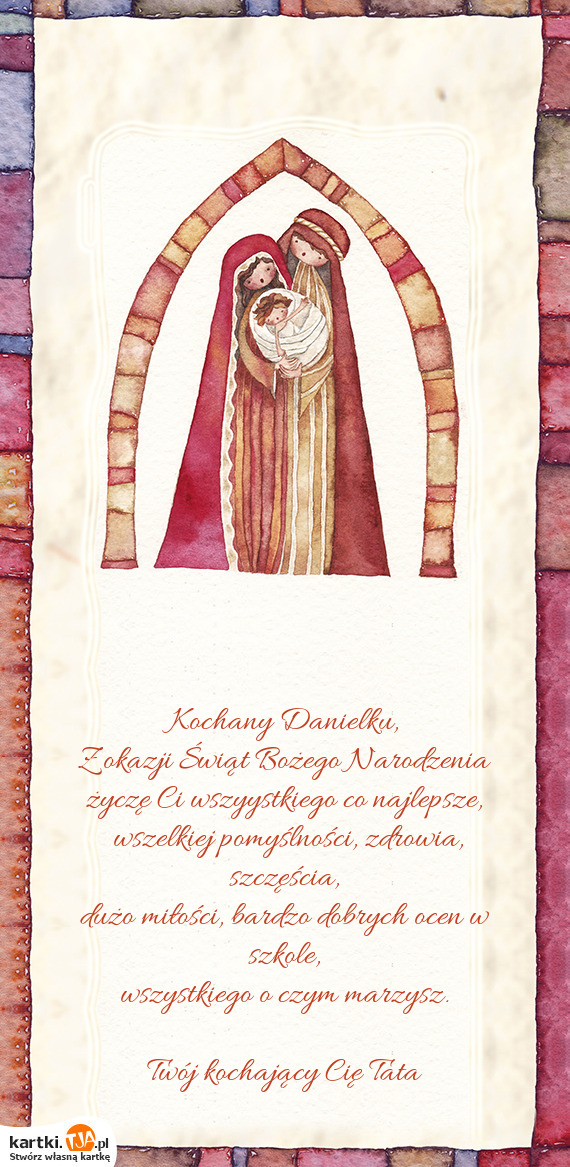 Kochany Danielku,
Z okazji Świąt Bożego Narodzenia
życzę Ci wszyystkiego co najlepsze,
wszelkiej pomyślności, zdrowia,
szczęścia,
dużo miłości, bardzo dobrych ocen w
szkole,
wszystkiego o czym marzysz.
Twój kochający Cię Tata
kartki.TJA.pl
Stwórz własną kartkę